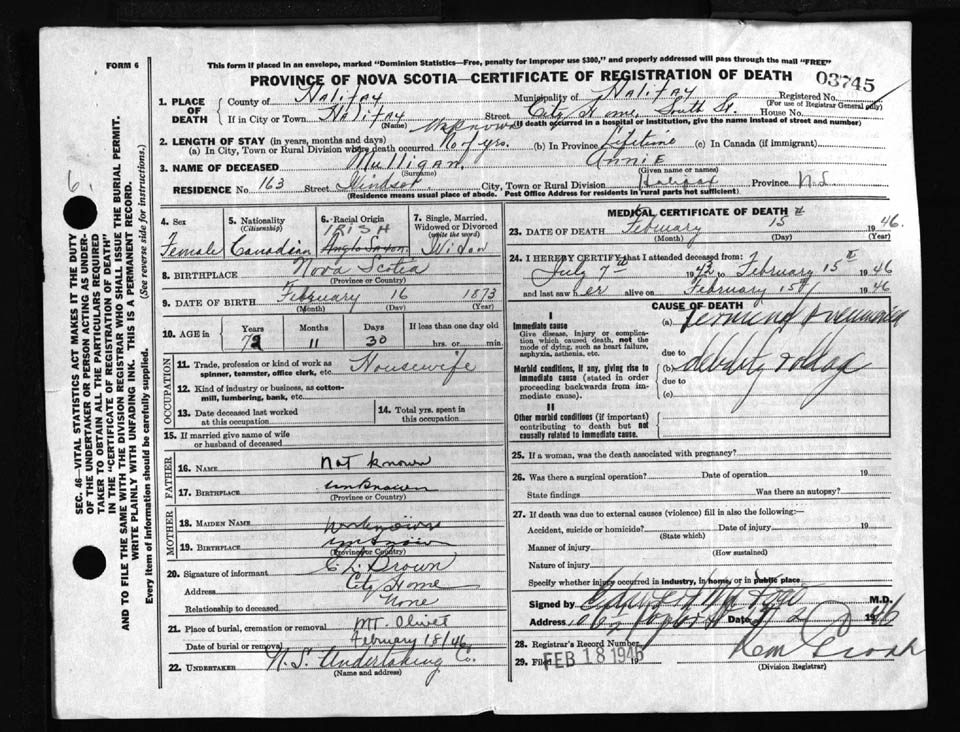 FORM 6
This form if placed in an envelope, marked "Dominion Statistics—Free, penalty for improper use $300," and properly addressed will pass through the mail "FREE"
PROVINCE OF NOVA SCOTIA—CERTIFICATE OF REGISTRATION OF DEATH
03745
1. PLACE OF DEATH
County of Halifax Municipality of Halifax Registered No.
(For use of Registrar General only)
If in City or Town Halifax Street City Home, South St. House No.
(Name) (If death occurred in a hospital or institution, give the name instead of street and number)
2. LENGTH OF STAY (in years, months and days) Unknown
(a) In City, Town or Rural Division where death occurred No of yrs. (b) In Province Lifetime (c) In Canada (if immigrant)
3. NAME OF DECEASED Mulligan ANNIE
(Surname) (Given name or names)
RESIDENCE No. 163 Street Windsor City, Town or Rural Division Halifax Province N.S.
(Residence means usual place of abode. Post Office Address for residents in rural parts not sufficient)
4. Sex
Female
5. Nationality
(Citizenship)
Canadian
6. Racial Origin
IRISH
Anglo Saxon
7. Single, Married, Widowed or Divorced
(write the word)
Widow
8. BIRTHPLACE Nova Scotia
(Province or Country)
9. DATE OF BIRTH February 16 1873
(Month) (Day) (Year)
10. AGE in
Years Months Days If less than one day old
72 11 30 hrs. or min.
OCCUPATION
11. Trade, profession or kind of work as spinner, teamster, office clerk, etc. Housewife
12. Kind of industry or business, as cotton-mill, lumbering, bank, etc.
13. Date deceased last worked at this occupation
14. Total yrs. spent in this occupation
15. If married give name of wife or husband of deceased
FATHER
16. NAME Not known
17. BIRTHPLACE unknown
(Province or Country)
MOTHER
18. MAIDEN NAME unknown
19. BIRTHPLACE unknown
(Province or Country)
20. Signature of informant C L Brown
Address City Home
Relationship to deceased None
21. Place of burial, cremation or removal MT. Olivet
Date of burial or removal February 18/46
22. UNDERTAKER N.S. Undertaking Co.
(Name and address)
MEDICAL CERTIFICATE OF DEATH
23. DATE OF DEATH February 15 1946
(Month) (Day) (Year)
24. I HEREBY CERTIFY that I attended deceased from:
July 7th 1942 to February 15th 1946
and last saw her alive on February 15th 1946
CAUSE OF DEATH
I
Immediate cause
Give disease, injury or complication which caused death, not the mode of dying, such as heart failure, asphyxia, asthenia, etc.
(a) Terminal Pneumonia
due to
Morbid conditions, if any, giving rise to immediate cause (stated in order proceeding backwards from immediate cause).
(b) debility
due to
(c)
II
Other morbid conditions (if important) contributing to death but not causally related to immediate cause.
25. If a woman, was the death associated with pregnancy?
26. Was there a surgical operation? Date of operation 19
State findings Was there an autopsy?
27. If death was due to external causes (violence) fill in also the following:—
Accident, suicide or homicide? Date of injury 19
(State which)
Manner of injury
(How sustained)
Nature of injury
Specify whether injury occurred in industry, in home, or in public place
Signed by M.D.
Address Date 1946
28. Registrar's Record Number
29. Filed FEB 18 1946 19
(Division Registrar)
SEC. 46—VITAL STATISTICS ACT MAKES IT THE DUTY
OF THE UNDERTAKER OR PERSON ACTING AS UNDER-
TAKER TO OBTAIN ALL THE PARTICULARS REQUIRED
IN THE "CERTIFICATE OF REGISTRATION OF DEATH"
AND TO FILE THE SAME WITH THE DIVISION REGISTRAR WHO SHALL ISSUE THE BURIAL PERMIT.
WRITE PLAINLY WITH UNFADING INK. THIS IS A PERMANENT RECORD.
Every item of information should be carefully supplied. (See reverse side for instructions.)
6.